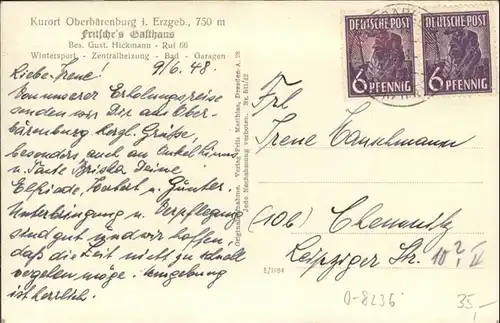 Kurort Oberbärenburg i. Erzgeb., 750 m
Fritsche's Gasthaus
Bes. Gust. Hickmann - Ruf 66
Wintersport - Zentralheizung - Bad - Garagen
Liebe Irene! 9/6.48.
Von unserer Erholungsreise
senden wir Dir aus Ober-
bärenburg herzl. Grüße,
besonders auch an Onkel
u. Tante Deine
Elfriede, Herbert u. Günter.
Unterbringung u. Verpflegung
sind gut und wir hoffen,
daß die Zeit nicht zu schnell
vergehen möge. Umgebung
ist herrlich.
Originalaufnahme. Verlag Fritz Matthias, Dresden-A. 28
Jede Nachahmung verboten. Nr. 211/42
E/1164
DEUTSCHE POST
6 PFENNIG
DEUTSCHE POST
6 PFENNIG
Frl
Irene Hanselmann
(10b) Chemnitz
Leipziger Str. 10 II
0-8236
35,-